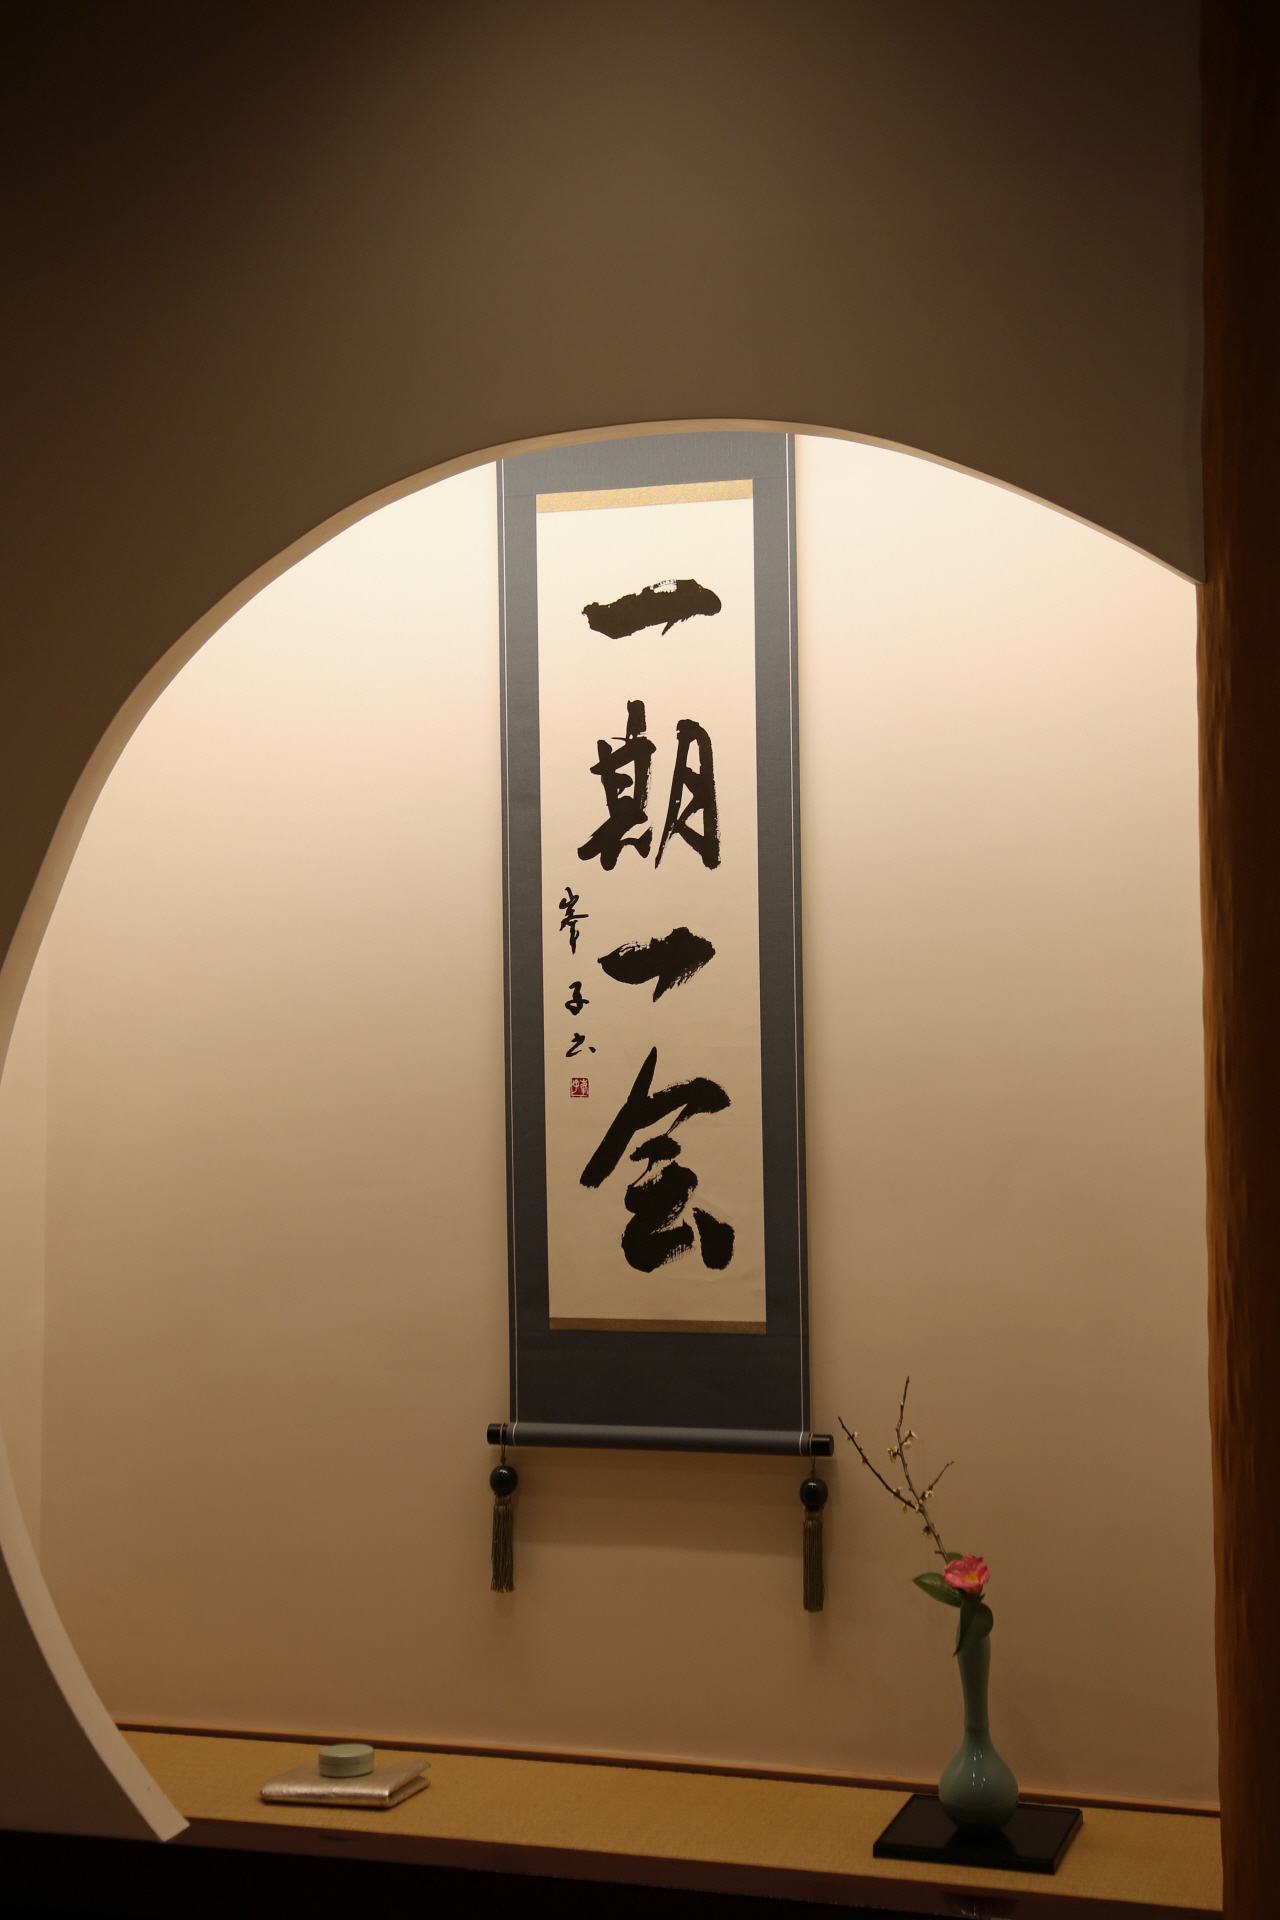 一期一会
峯子书